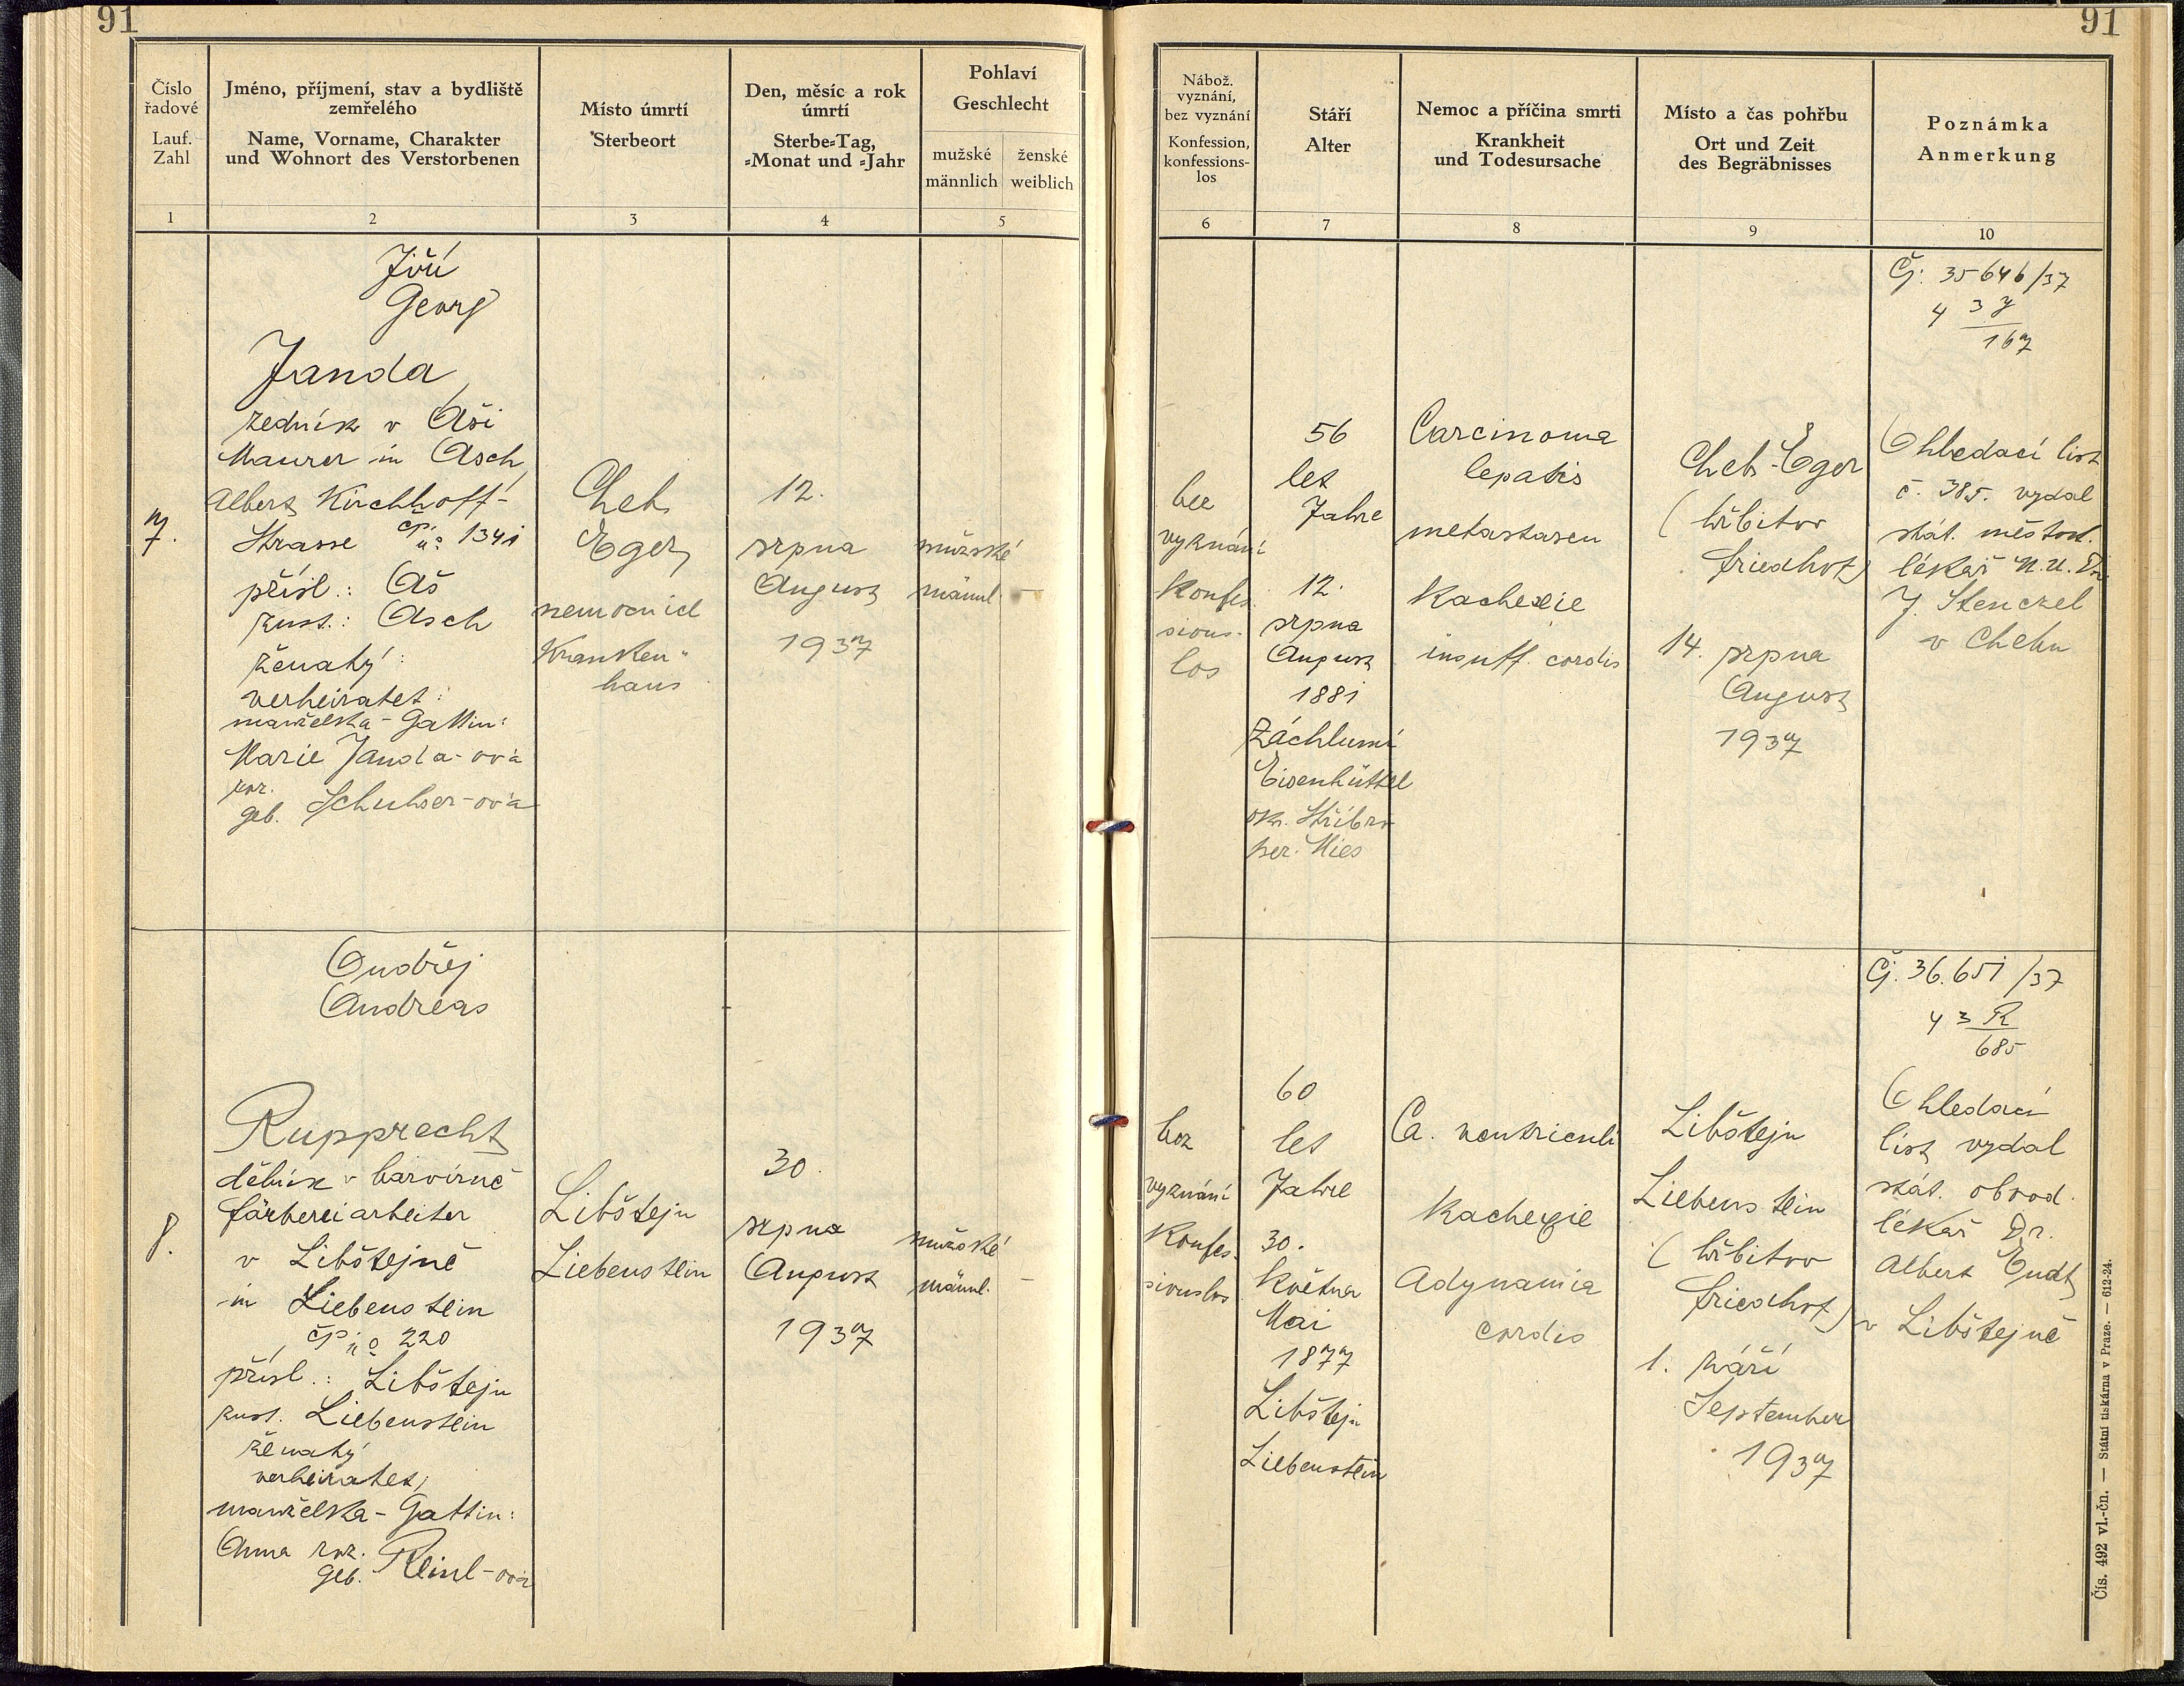 91
91
Číslo řadové
Lauf. Zahl
Jméno, příjmení, stav a bydliště zemřelého
Name, Vorname, Charakter und Wohnort des Verstorbenen
Místo úmrtí
Sterbeort
Den, měsíc a rok úmrtí
Sterbe-Tag, -Monat und -Jahr
Pohlaví
Geschlecht
mužské
männlich
ženské
weiblich
Nábož. vyznání, bez vyznání
Konfession, konfessions-los
Stáří
Alter
Nemoc a příčina smrti
Krankheit und Todesursache
Místo a čas pohřbu
Ort und Zeit des Begräbnisses
Poznámka
Anmerkung
1
2
3
4
5
6
7
8
9
10
7.
Jiří
Georg
Janda,
zedník v Aši
Maurer in Asch,
Albert Kirchhoff-
Strasse čp. no 1341
přísl.: Aš
zust.: Asch
ženatý:
verheiratet:
manželka - Gattin:
Marie Janda-ová
roz.
geb. Schuhser-ová
Cheb
Eger,
nemocnice
Kranken-
haus
12.
srpna
August
1937
mužské
männl. -
bez
vyznání
Konfes-
sions-
los
56
let
Jahre
12.
srpna
August
1881
Záchlumí
Eisenhüttel
okr. Stříbro
bez. Mies
Carcinoma
lepatis
metastasen
Kachexie
insuff. cordis
Cheb-Eger
(hřbitov
friedhof)
14. srpna
August
1937
Čj: 35646/37
4 3 J
167
Ohledací list
č. 385. vydal
stát. městsk.
lékař M.U.Dr.
J. Stenczel
v Chebu
8.
Ondřej
Andreas
Rupprecht
dělník v barvírně
färbereiarbeiter
v Libštejně
in Liebenstein
čp no 220
přísl.: Libštejn
zust. Liebenstein
ženatý
verheiratet;
manželka - Gattin:
Anna roz.
geb. Reinl-ová
Libštejn
Liebenstein
30.
srpna
August
1937
mužské
männl. -
bez
vyznání
Konfes-
sionslos
60
let
Jahre
30.
května
Mai
1877
Libštejn
Liebenstein
Ca. ventriculi
Kachexie
Adynamia
cordis
Libštejn
Liebenstein
(hřbitov
friedhof)
1. září
September
1937
Čj. 36.651/37
4 3 R
685
Ohledací
list vydal
stát. obvod.
lékař Dr.
Albert Endt
v Libštejně
Čís. 492 vl.-čn. — Státní tiskárna v Praze. — 612-24.